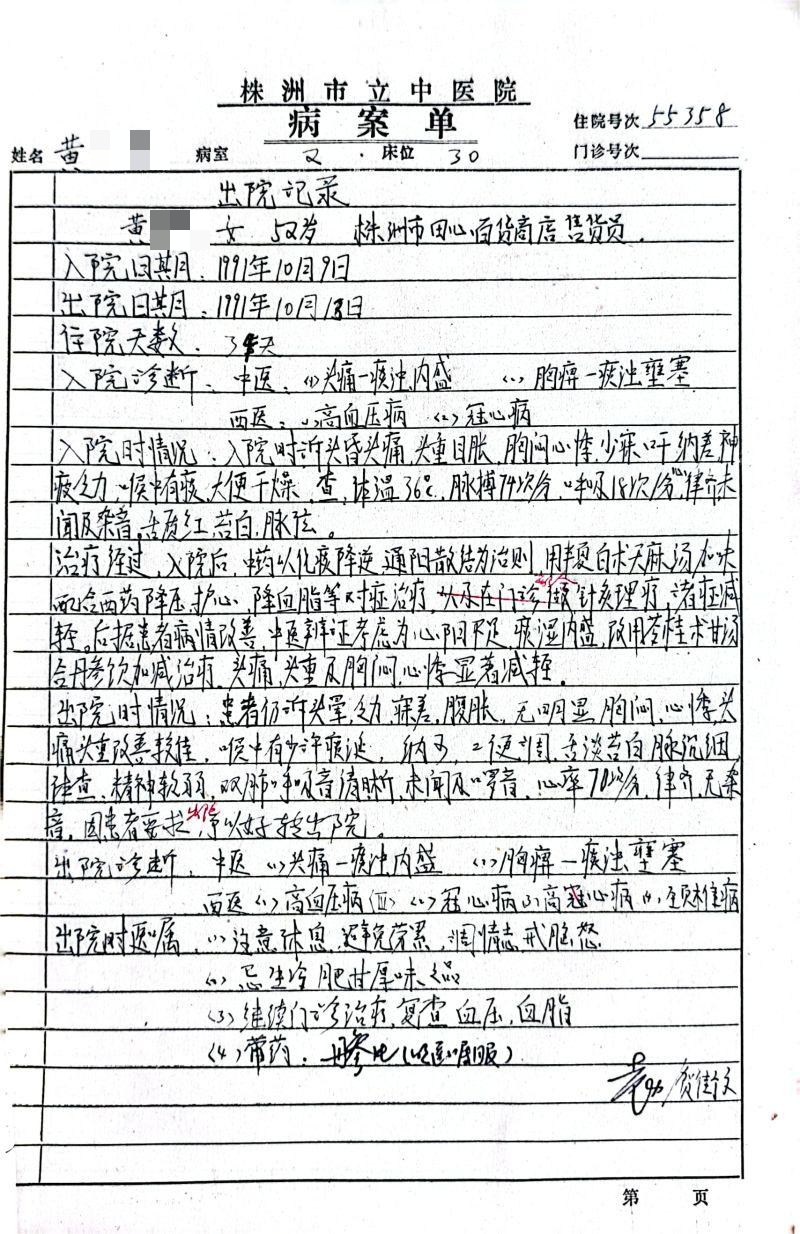 株洲市立中医院
病案单
住院号次 55358
姓名 黄 病室 2 床位 30 门诊号次
出院记录
黄 女 52岁 株洲市田心百货商店售货员.
入院日期: 1991年10月9日
出院日期: 1991年10月13日
住院天数: 天
入院诊断: 中医: (1)头痛—痰浊内盛 (2)胸痹—痰浊壅塞
西医: (1)高血压病 (2)冠心病
入院时情况: 入院时诉头昏头痛,头重目胀,胸闷心悸,少寐,口干纳差神
疲乏力,喉中有痰,大便干燥。查:体温36℃,脉搏74次/分,呼吸18次/分,心律齐未
闻及杂音,舌质红苔白,脉弦。
治疗经过:入院后,中药以化痰降逆,通阳散结为治则,用半夏白术天麻汤加味
配合西药降压,护心,降血脂等对症治疗,配合针灸理疗,诸症减
轻。后据患者病情改善,中医辨证考虑为心阳不足,痰湿内盛,改用苓桂术甘汤
合丹参饮加减治疗,头痛,头重及胸闷,心悸显著减轻。
出院时情况:患者仍诉头晕,乏力,寐差,腹胀,无明显胸闷,心悸,头
痛头重改善较佳,喉中有少许痰涎,纳可,二便调,舌淡苔白脉沉细,
体查:精神软弱,双肺呼吸音清晰,未闻及啰音,心率70次/分,律齐,无杂
音,因患者要求出院,以好转出院。
出院诊断: 中医 (1)头痛—痰浊内盛 (2)胸痹—痰浊壅塞
西医 (1)高血压病(II) (2)冠心病 (3)高 心病 (4)颈椎病
出院时医嘱: (1)注意休息,避免劳累,调情志,戒脑怒
(2)忌生冷肥甘厚味之品
(3)继续门诊治疗,复查血压,血脂
(4)带药: 丹参片(以医嘱服)
贺佳文
第 页